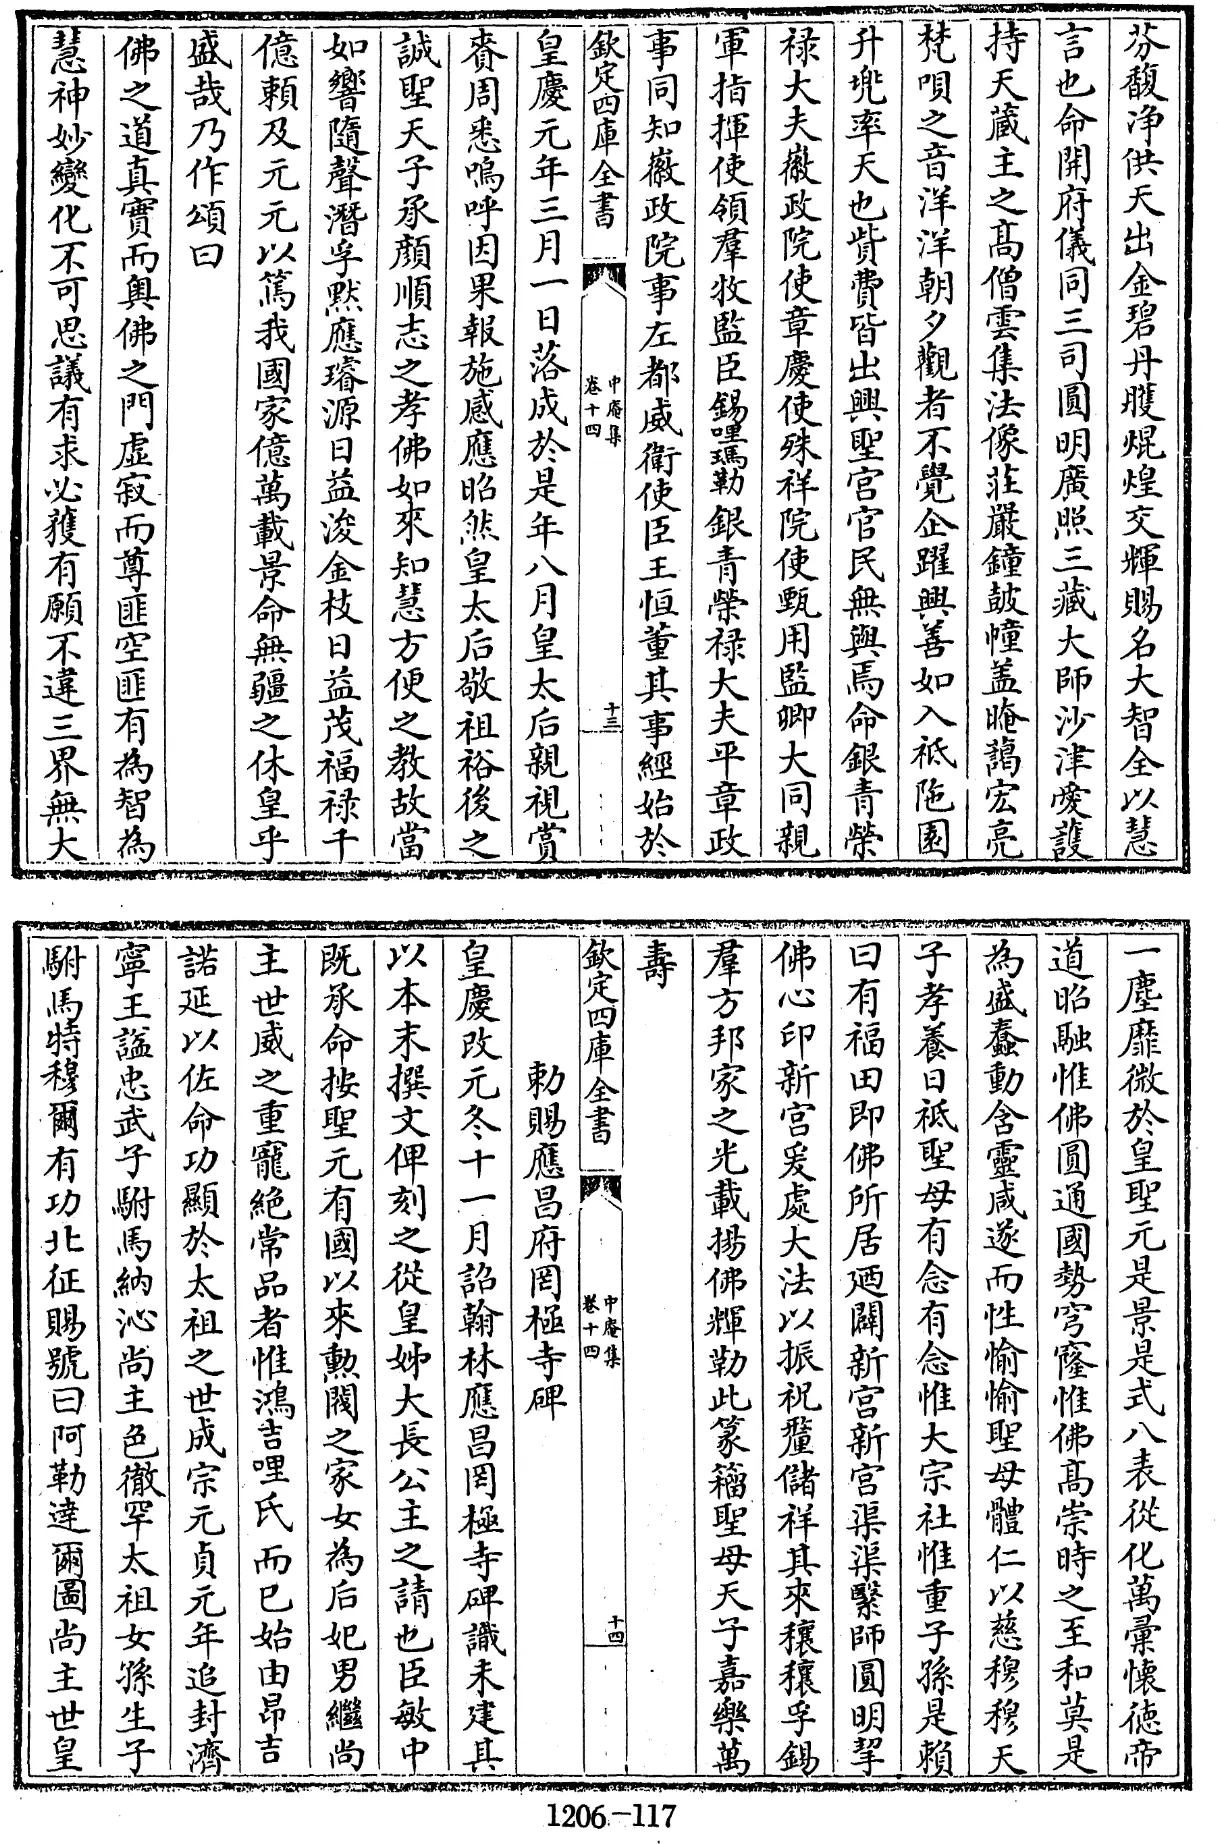 芬馥净供天出金碧丹雘焜煌交輝賜名大智全以慧
言也命開府儀同三司圓明廣照三藏大師沙津愛護
持天藏主之髙僧雲集法像莊嚴鐘鼓幢盖晻藹宏亮
梵唄之音洋洋朝夕觀者不覺企躍興善如入祗陁園
升兠率天也貲費皆出興聖宫官民無與焉命銀青榮
禄大夫徽政院使章慶使殊祥院使甄用監卿大同親
軍指揮使領羣牧監臣錫哩瑪勒銀青榮禄大夫平章政
事同知徽政院事左都威衛使臣王恒董其事經始於
欽定四庫全書
中庵集
卷十四
十三
皇慶元年三月一日落成於是年八月皇太后親視賞
賚周悉嗚呼因果報施感應昭然皇太后敬祖裕後之
誠聖天子承顔順志之孝佛如來知慧方便之教故當
如響隨聲潛孚黙應璿源日益浚金枝日益茂福禄千
億頼及元元以篤我國家億萬載景命無疆之休皇乎
盛哉乃作頌曰
佛之道真實而輿佛之門虚寂而尊匪空匪有為智為
慧神妙變化不可思議有求必獲有願不違三界無大
一塵靡微於皇聖元是景是式八表從化萬彚懐徳帝
道昭融惟佛圓通國勢穹窿惟佛髙崇時之至和莫是
為盛蠢動含靈咸遂而性愉愉聖母體仁以慈穆穆天
子孝養日祗聖母有念有念惟大宗社惟重子孫是賴
曰有福田即佛所居廼闢新宫新宫渠渠繄師圓明挈
佛心印新宫爰處大法以振祝釐儲祥其來穰穰孚錫
羣方邦家之光載揚佛輝勒此篆籕聖母天子嘉樂萬
壽
欽定四庫全書
中庵集
卷十四
十四
勅賜應昌府罔極寺碑
皇慶改元冬十一月詔翰林應昌罔極寺碑識未建其
以本末撰文俾刻之從皇姊大長公主之請也臣敏中
既承命按聖元有國以來勲閥之家女為后妃男繼尚
主世威之重寵絶常品者惟鴻吉哩氏而已始由昻吉
諾延以佐命功顯於太祖之世成宗元貞元年追封濟
寧王諡忠武子駙馬納沁尚主色徹罕太祖女孫生子
駙馬特穆爾有功北征賜號曰阿勒達爾圖尚主世皇
1206-117